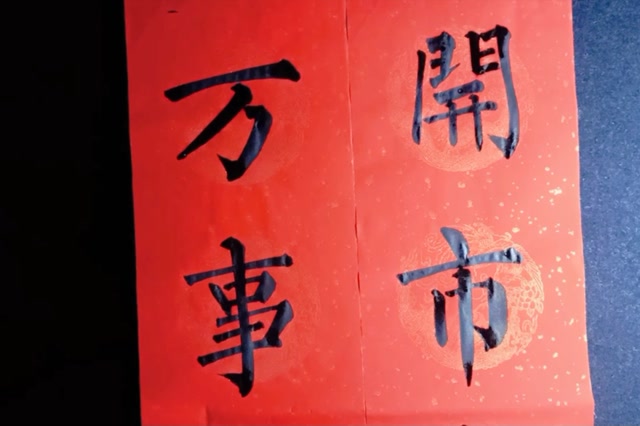 開市
万事